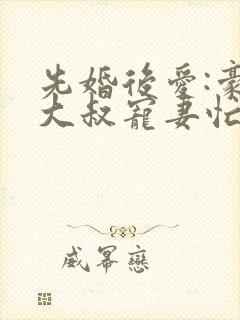 先婚後愛:豪
大叔寵妻忙
威冪戀